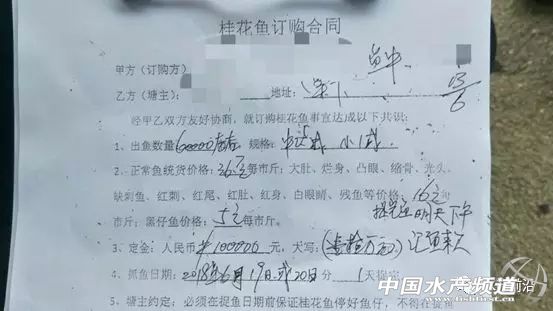 桂花鱼订购合同
甲方（订购方）
乙方（塘主）：　地址：
13/6
经甲乙双方友好协商，就订购桂花鱼事宜达成以下共识：
1、出鱼数量60000左右　规格：
2、正常鱼统货价格：36元每市斤；大肚、烂身、凸眼、缩骨、光头、
缺刺鱼、红刺、红尾、红肚、红身、白眼睛、残鱼等价格：16元每
市斤；黑仔鱼价格：5元每市斤。
明天下午
3、定金：人民币¥100000元，大写：（壹拾万元）
4、抓鱼日期：2018年6月19日或20日分　1天捉完
5、塘主约定：必须在捉鱼日期前保证桂花鱼停好鱼仔，不得在捉鱼
中国水产频道
www.fishfirst.cn
前沿